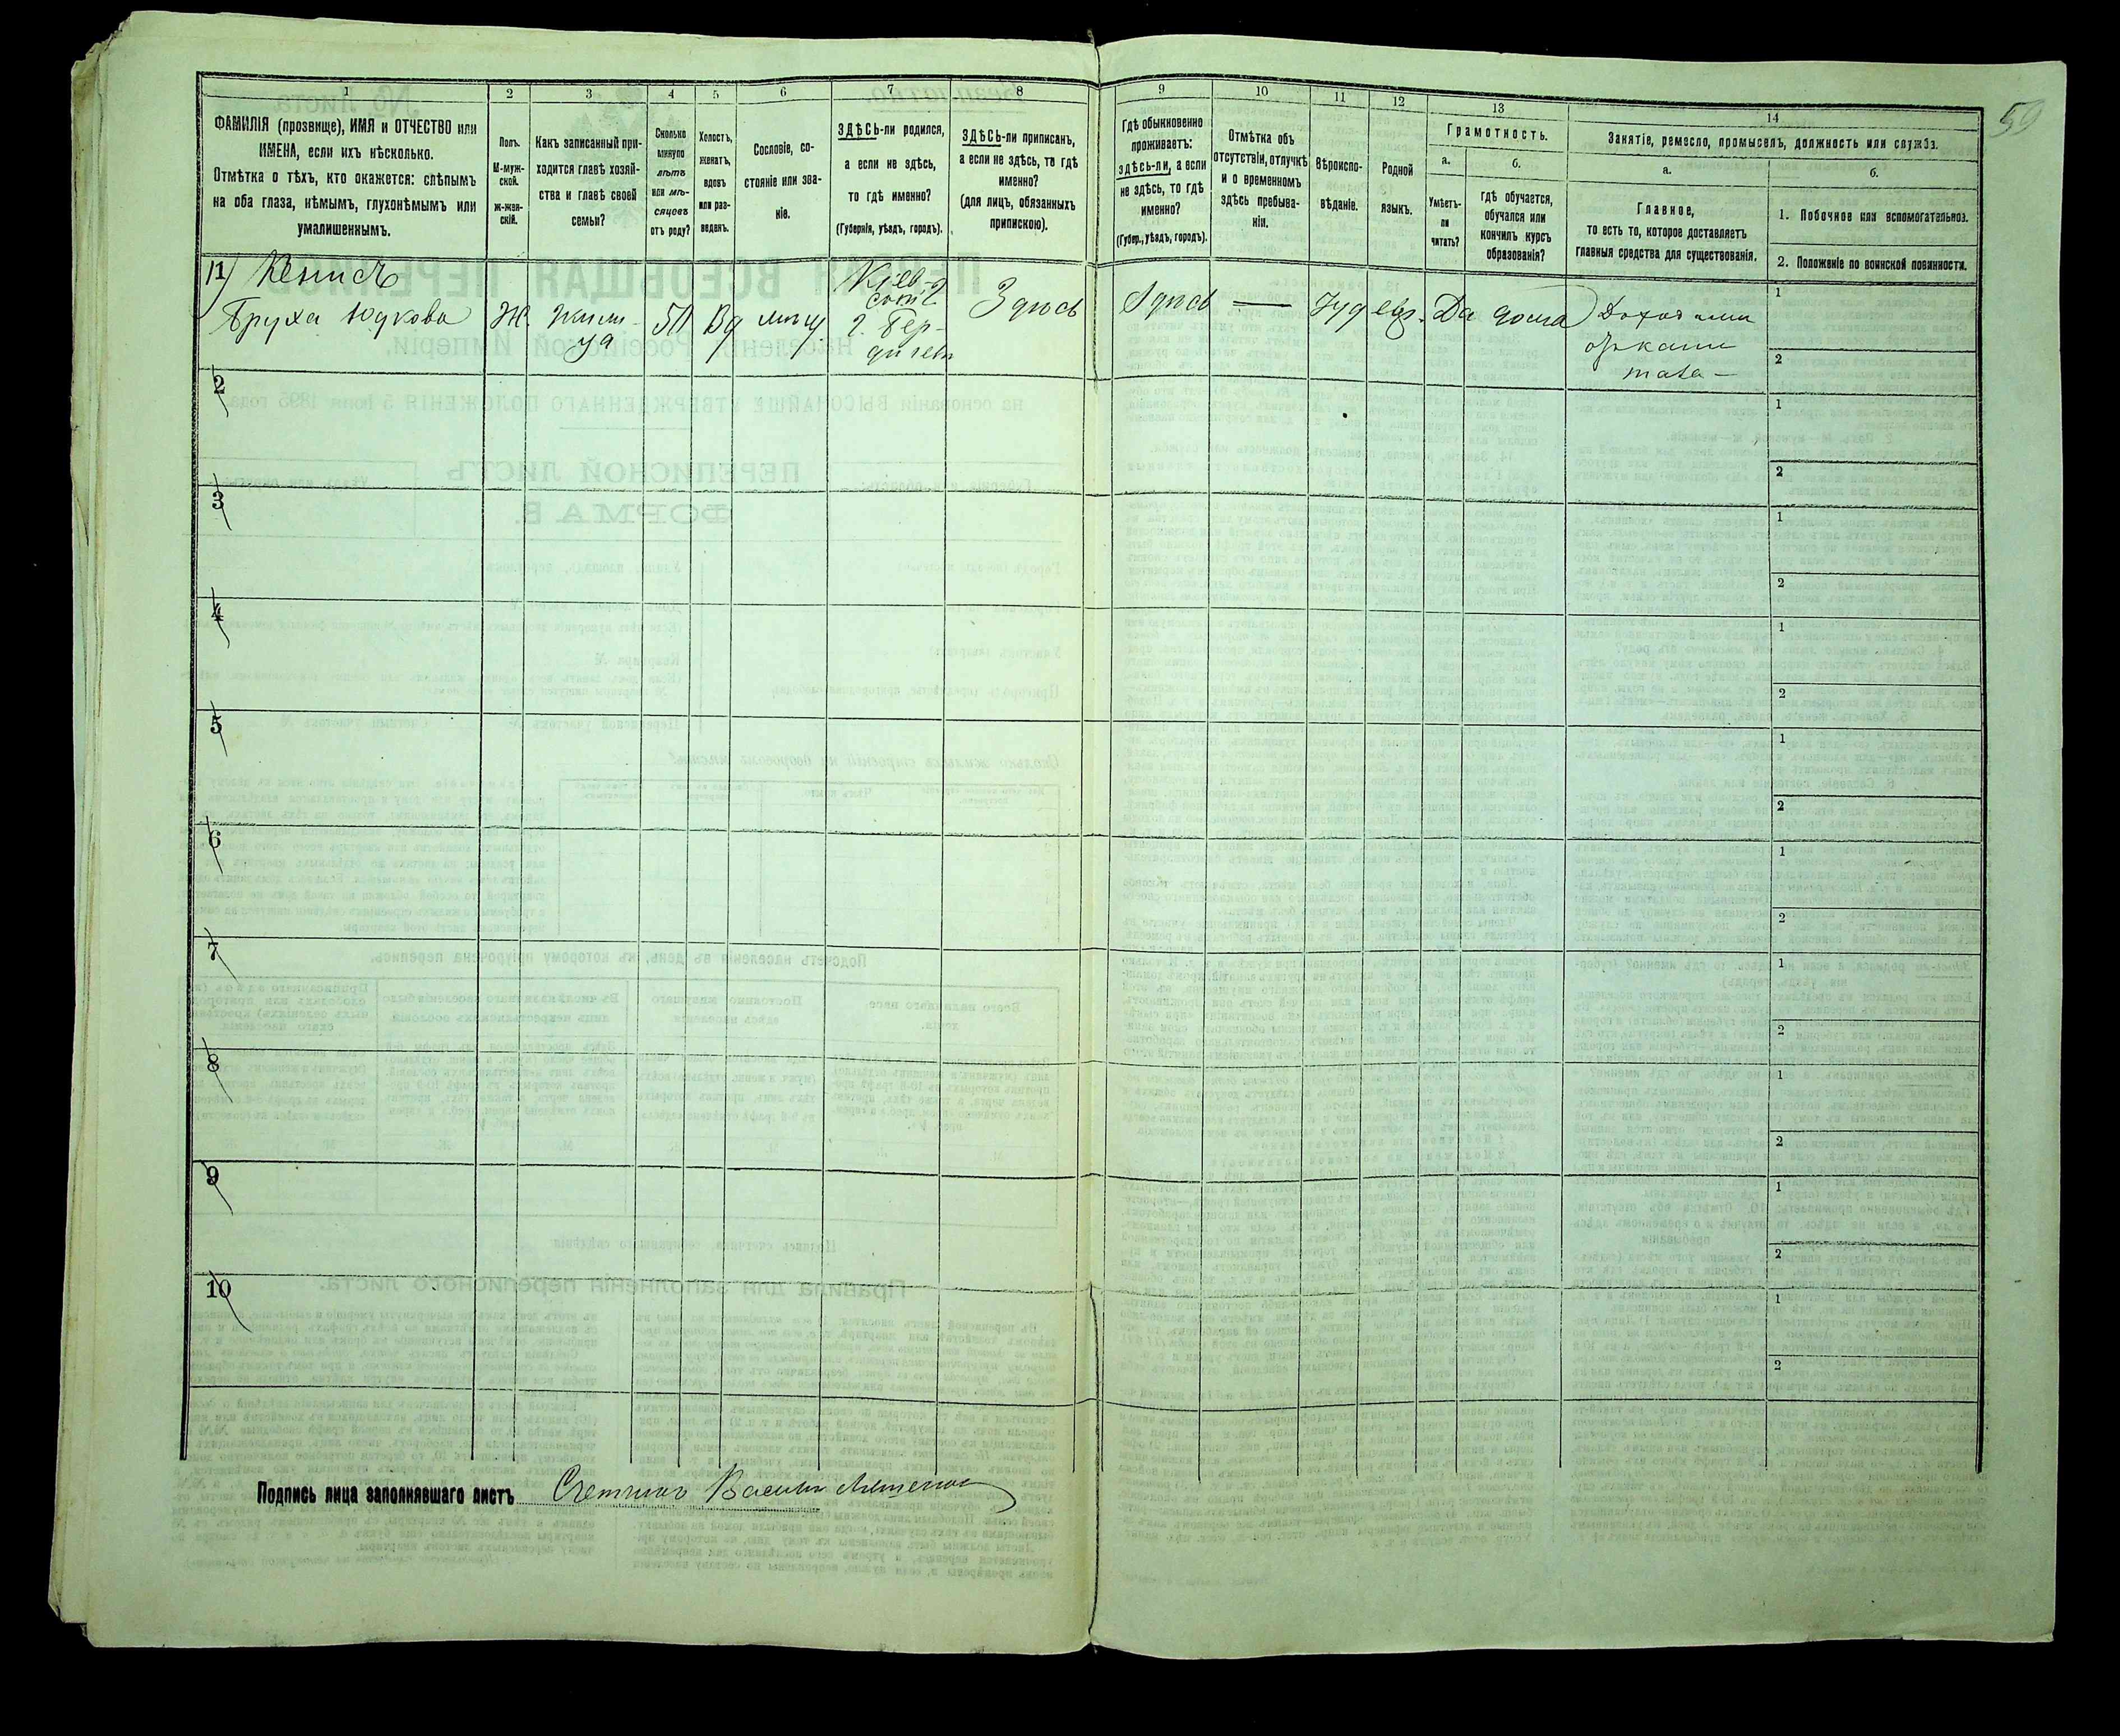 59
1 2 3 4 5 6 7 8 9 10 11 12 13 14
ФАМИЛІЯ (прозвище), ИМЯ и ОТЧЕСТВО или
ИМЕНА, если ихъ нѣсколько.
Отмѣтка о тѣхъ, кто окажется: слѣпымъ
на оба глаза, нѣмымъ, глухонѣмымъ или
умалишеннымъ.
Полъ.
М-муж-
ской.
Ж-жен-
скій.
Какъ записанный при-
ходится главѣ хозяй-
ства и главѣ своей
семьи?
Сколько
минуло
лѣтъ
или мѣ-
сяцевъ
отъ роду?
Холостъ,
женатъ,
вдовъ
или раз-
веденъ.
Сословіе, со-
стояніе или зва-
ніе.
ЗДѢСЬ-ли родился,
а если не здѣсь,
то гдѣ именно?
(Губернія, уѣздъ, городъ).
ЗДѢСЬ-ли приписанъ,
а если не здѣсь, то гдѣ
именно?
(для лицъ, обязанныхъ
припискою).
Гдѣ обыкновенно
проживаетъ:
здѣсь-ли, а если
не здѣсь, то гдѣ
именно?
(Губер., уѣздъ, городъ).
Отмѣтка объ
отсутствіи, отлучкѣ
и о временномъ
здѣсь пребыва-
ніи.
Вѣроиспо-
вѣданіе.
Родной
языкъ.
Грамотность.
а.
Умѣетъ-
ли
читать?
б.
гдѣ обучается,
обучался или
кончилъ курсъ
образованія?
Занятіе, ремесло, промыселъ, должность или служба.
а.
Главное,
то есть то, которое доставляетъ
главныя средства для существованія.
б.
1. Побочное или вспомогательное.
2. Положеніе по воинской повинности.
1
Бруха Юдкова
Ж
50
Вд
мѣщ
Кіев.
г. Бер-
дичевъ
Здѣсь
Здѣсь
—
Іуд
евр.
Да
дома
1
2
2
1
2
3
1
2
4
1
2
5
1
2
6
1
2
7
1
2
8
1
2
9
1
2
10
1
2
Подпись лица заполнявшаго листъ Счетчикъ